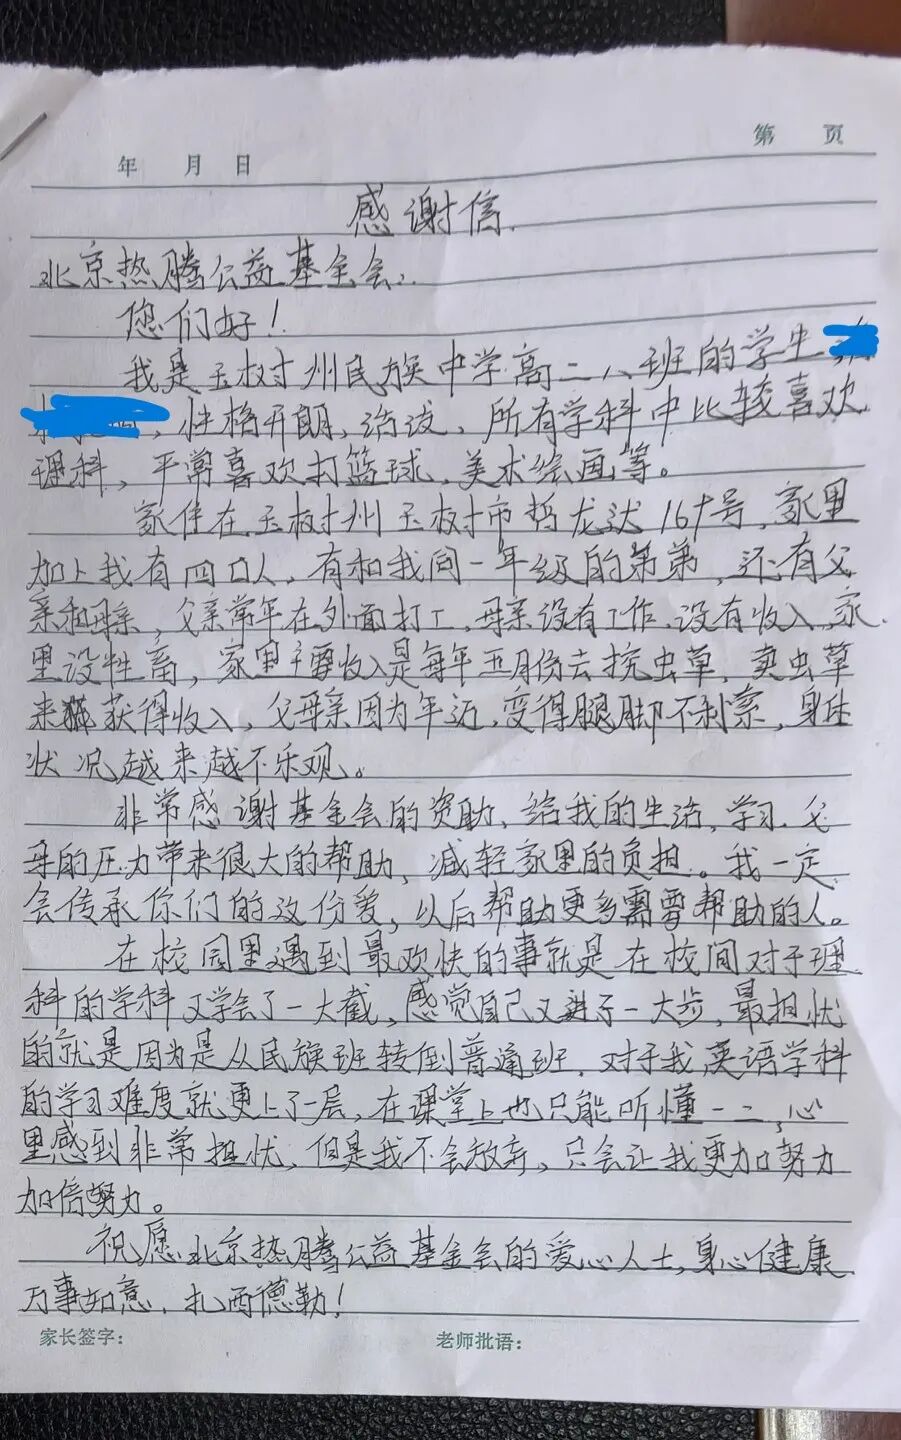 第 页
年 月 日
感谢信.
北京热腾公益基金会:
您们好!
我是玉树州民族中学高二八班的学生
,性格开朗,活泼、所有学科中比较喜欢
理科,平常喜欢打篮球、美术绘画等。
家住在玉树州玉树市 龙达169号,家里
加上我有四口人,有和我同一年级的弟弟,还有父
亲和母亲,父亲常年在外面打工,母亲没有工作.没有收入,家
里没牲畜,家里主要收入是每年五月份去挖虫草,卖虫草
来 获得收入,父母亲因为年迈,变得腿脚不利索,身体
状况越来越不乐观。
非常感谢基金会的资助、给我的生活,学习.父
母的压力带来很大的帮助,减轻家里的负担。我一定
会传承你们的这份爱,以后帮助更多需要帮助的人。
在校园里遇到最欢快的事就是在校间对于理
科的学科又学会了一大截,感觉自己又进了一大步,最担忧
的就是因为是从民族班转到普通班,对于我英语学科
的学习难度就更上了一层,在课堂上也只能听懂一二,心
里感到非常担忧,但是我不会放弃,只会让我更加努力
加倍努力。
祝愿北京热腾公益基金会的爱心人士,身心健康
万事如意.扎西德勒!
家长签字: 老师批语: